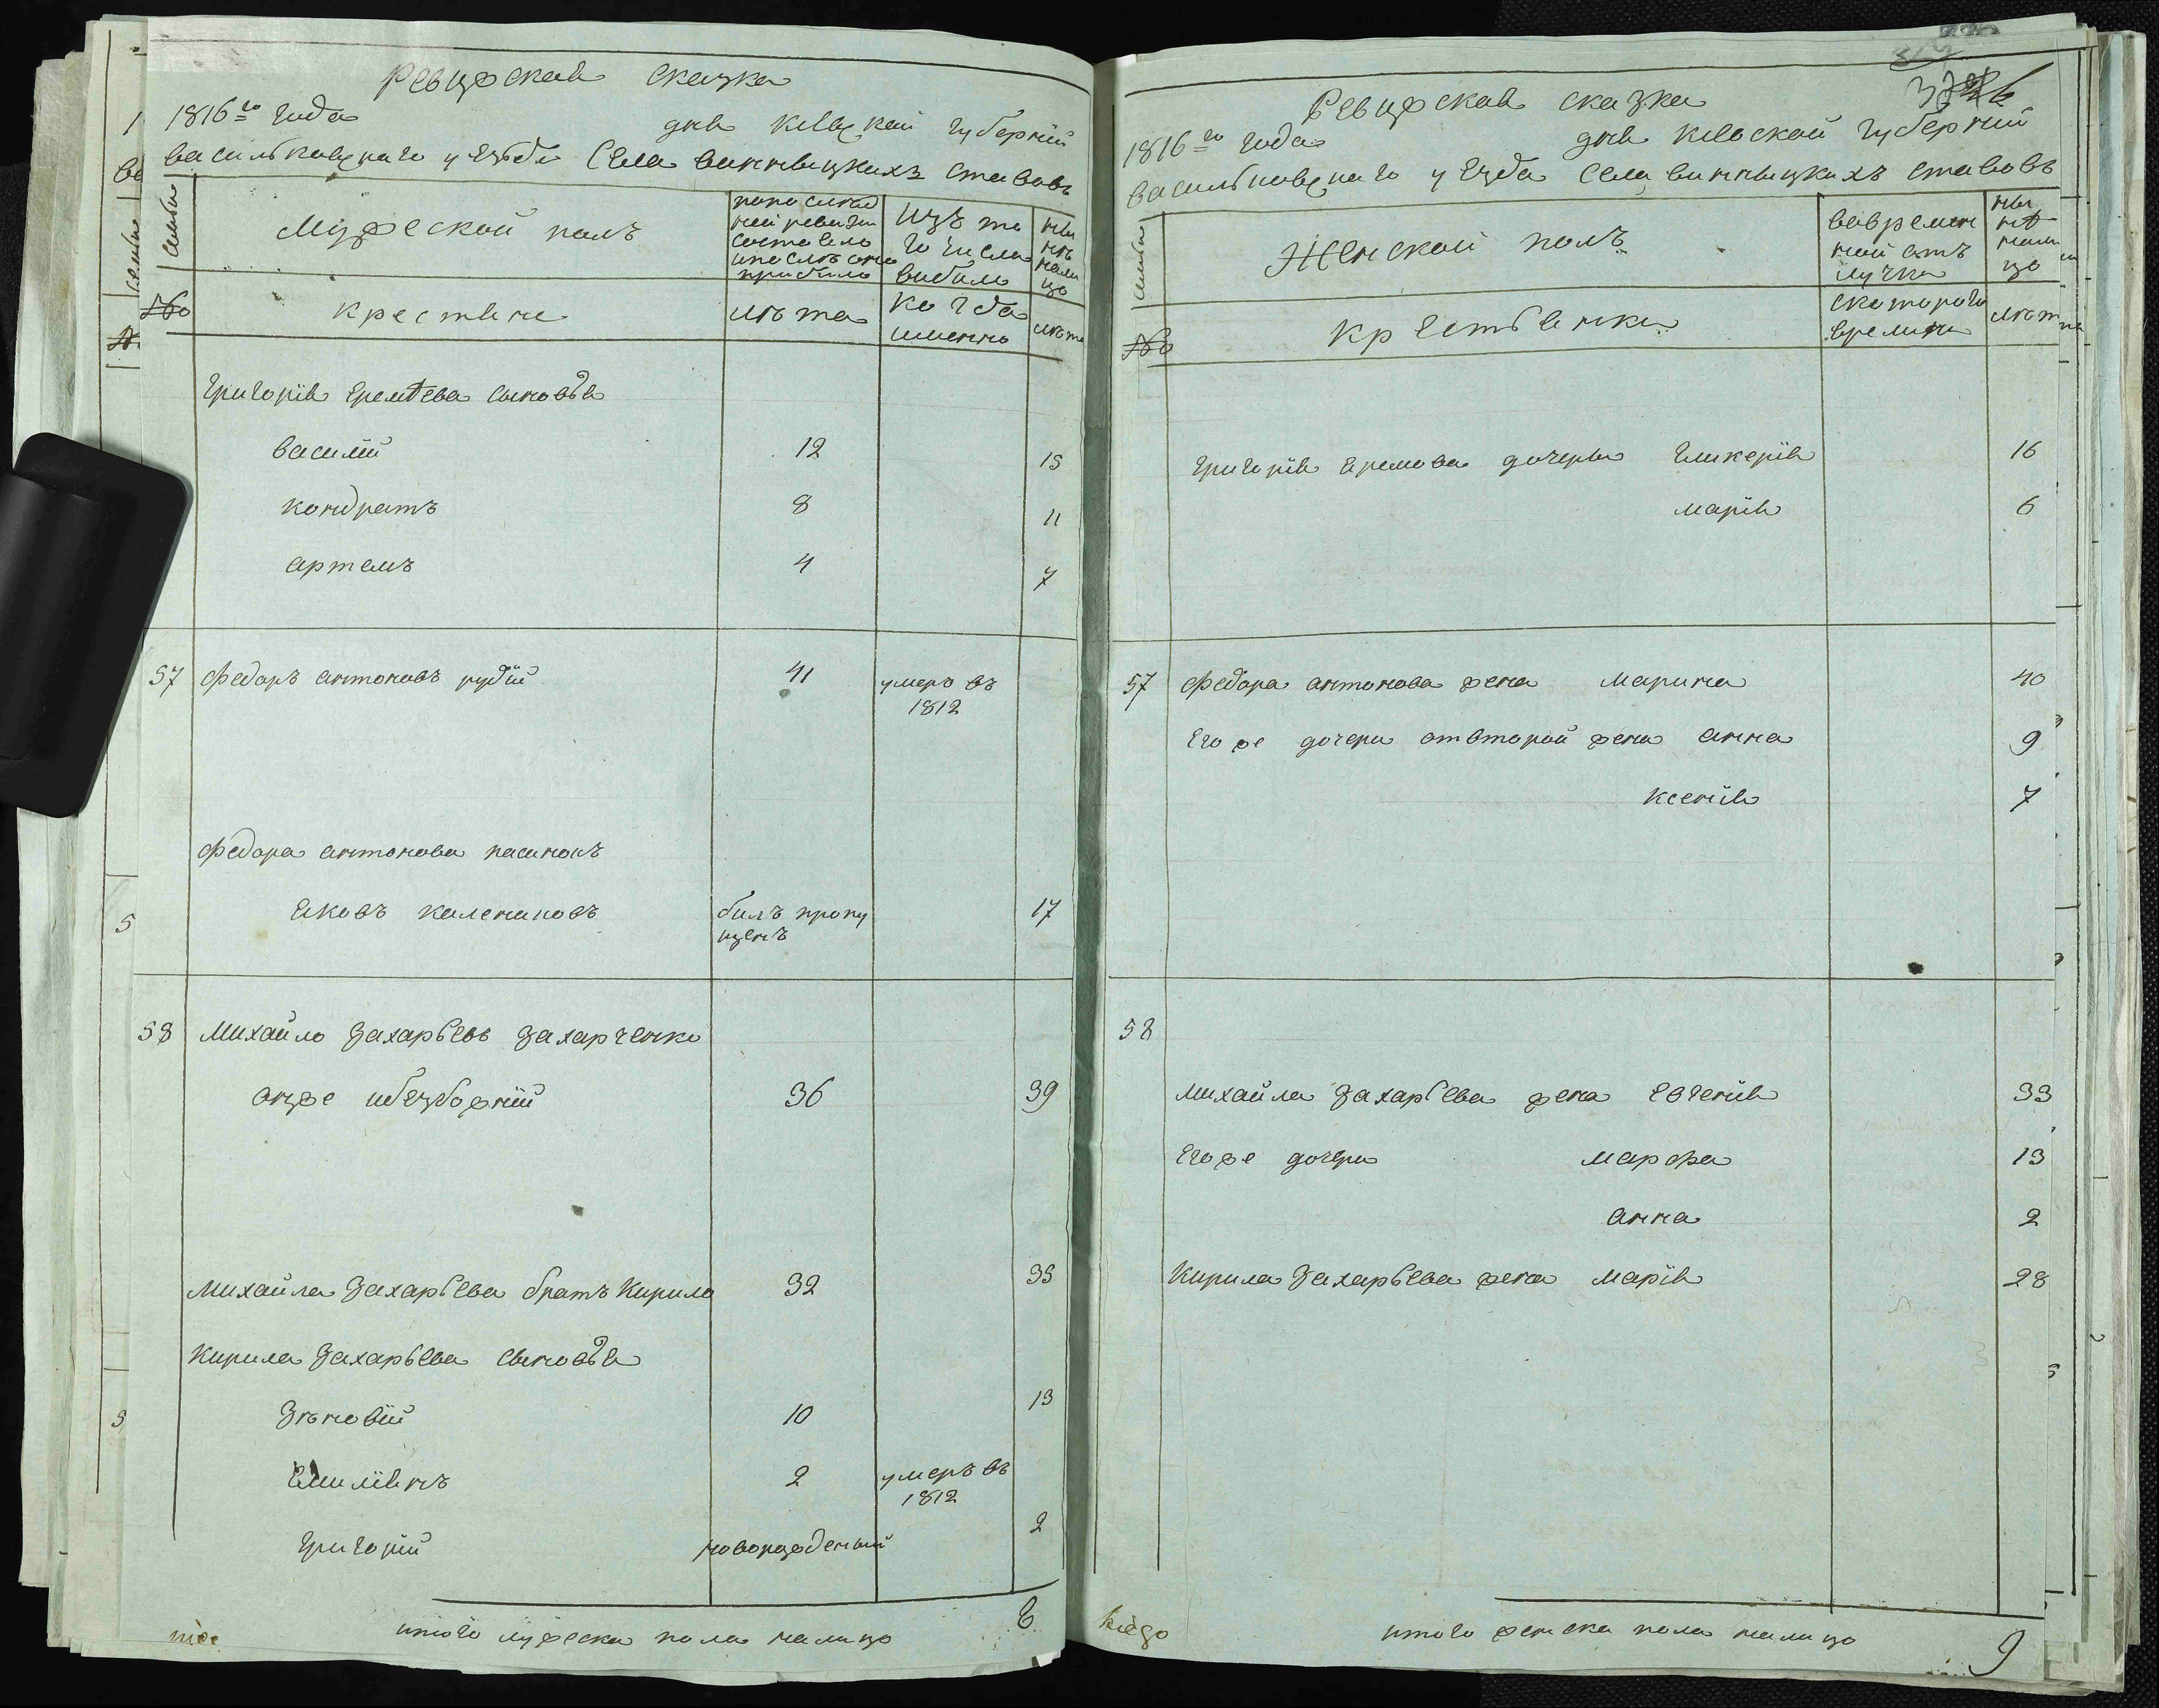 Ревизская сказка
1816го года для киевской губернии
васильковскаго уезда Села винницкихъ ставовъ
семьи
Мужеской полъ
по последней ревизии состояло и после оной прибыло
Изъ того числа выбыло
ныне на лицо
№
крестьяне
лета
когда именно
лета
григорія еремѣева сыновья
василій 12 15
кондратъ 8 11
артемъ 4 7
57 Федоръ антоновъ рудій 41 умеръ въ
1812
Федора антонова пасинокъ
яковъ калениковъ билъ пропу 17
щенъ
58 Михайло Захарьевъ Захарченко
36 39
Михайла Захарьева братъ Кирило 32 35
Кирила Захарьева сыновья
Зѣновій 10 13
Емиліянъ 2 умеръ въ
1812
григорій новорожденый 2
итого мужеска пола налицо 8
Ревизская сказка
1816го года для киевской губернии
васильковскаго уезда Села винницкихъ ставовъ
семьи
Женской полъ
во временной отлучке
ныне на лицо
№
крестьянки
с котораго времени
лета
григорія еремова дочеры гликерія 16
марія 6
57 Федора антонова жена марина 40
его же дочери отвторой жени анна 9
ксенія 7
58
михайла Захарьева жена евгенія 33
его же дочери марфа 13
анна 2
Кирила Захарьева жена марія 28
kiego
итого женска пола налицо 9